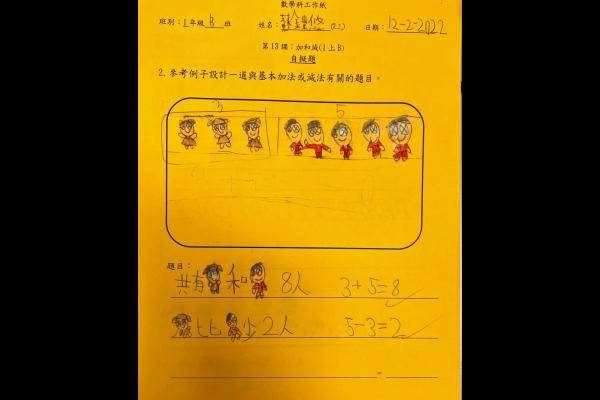 數學科工作紙
班別：1年級B班 姓名： (22) 日期：12-2-2022
第13課：加和減(1上B)
自擬題
2. 參考例子設計一道與基本加法或減法有關的題目。
3 5
題目：
共有 和 8人 3+5=8
比 少2人 5-3=2